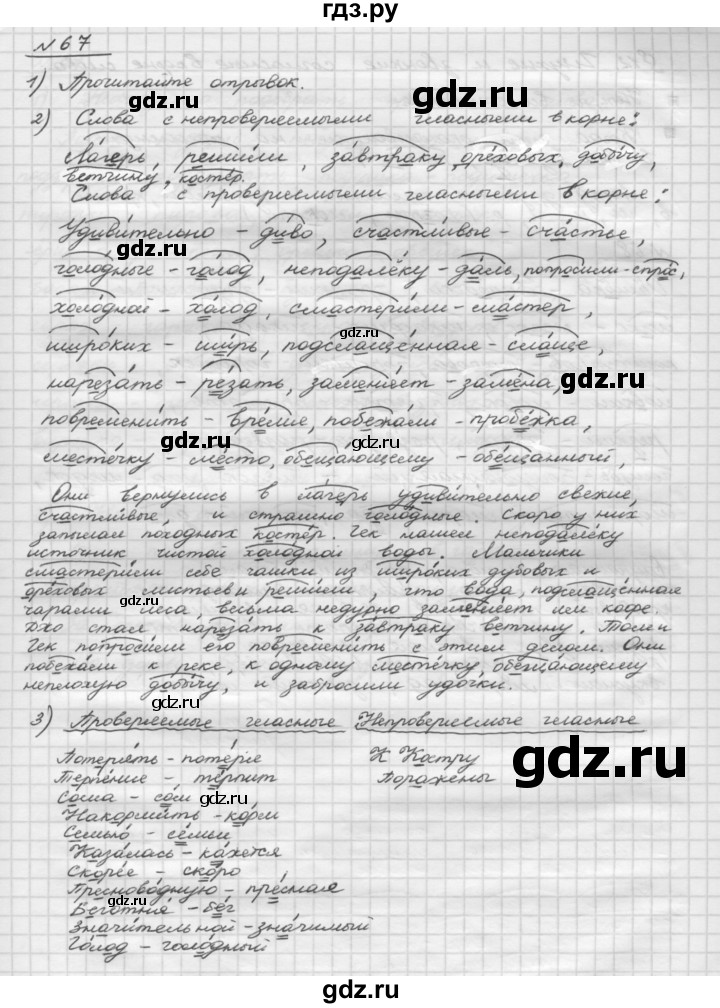 гдз.ру
№ 67
1) Прочитайте отрывок.
2) Слова с непроверяемыми гласными в корне:
Лагерь, решили, завтраку, ореховых, добычу,
ветчину, костёр.
Слова с проверяемыми гласными в корне:
Удивительно – диво, счастливые – счастье,
голодные – голод, неподалёку – даль, попросили – спрос,
холодной – холод, смастерили – мастер,
широких – ширь, подслащённая – слаще,
нарезать – резать, заменяет – замена,
повременить – время, побежали – пробежка,
местечку – место, обещающему – обещанный,
Они вернулись в лагерь удивительно свежие,
счастливые, и страшно голодные. Скоро у них
запылал походный костёр. Гек нашел неподалёку
источник чистой холодной воды. Мальчики
смастерили себе чашки из широких дубовых и
ореховых листьев и решили, что вода, подслащённая
чарами леса, весьма недурно заменяет им кофе.
Джо стал нарезать к завтраку ветчину. Том и
Гек попросили его повременить с этим делом. Они
побежали к реке, к одному местечку, обещающему
неплохую добычу, и забросили удочки.
3) Проверяемые гласные Непроверяемые гласные
Потерять – потеріе К Костру
Терпение – терпит Поражены
Сома – сом
Накормить – корм
Семью – семьи
Казалась – кажется
Скорее – скоро
Пресноводную – пресная
Беготня – бег
Значительной – значимый
Голод – голодный
gdz.ru
gdz.ru
gdz.ru
gdz.ru
gdz.ru
gdz.ru
gdz.ru
gdz.ru
gdz.ru
gdz.ru
gdz.ru
gdz.ru